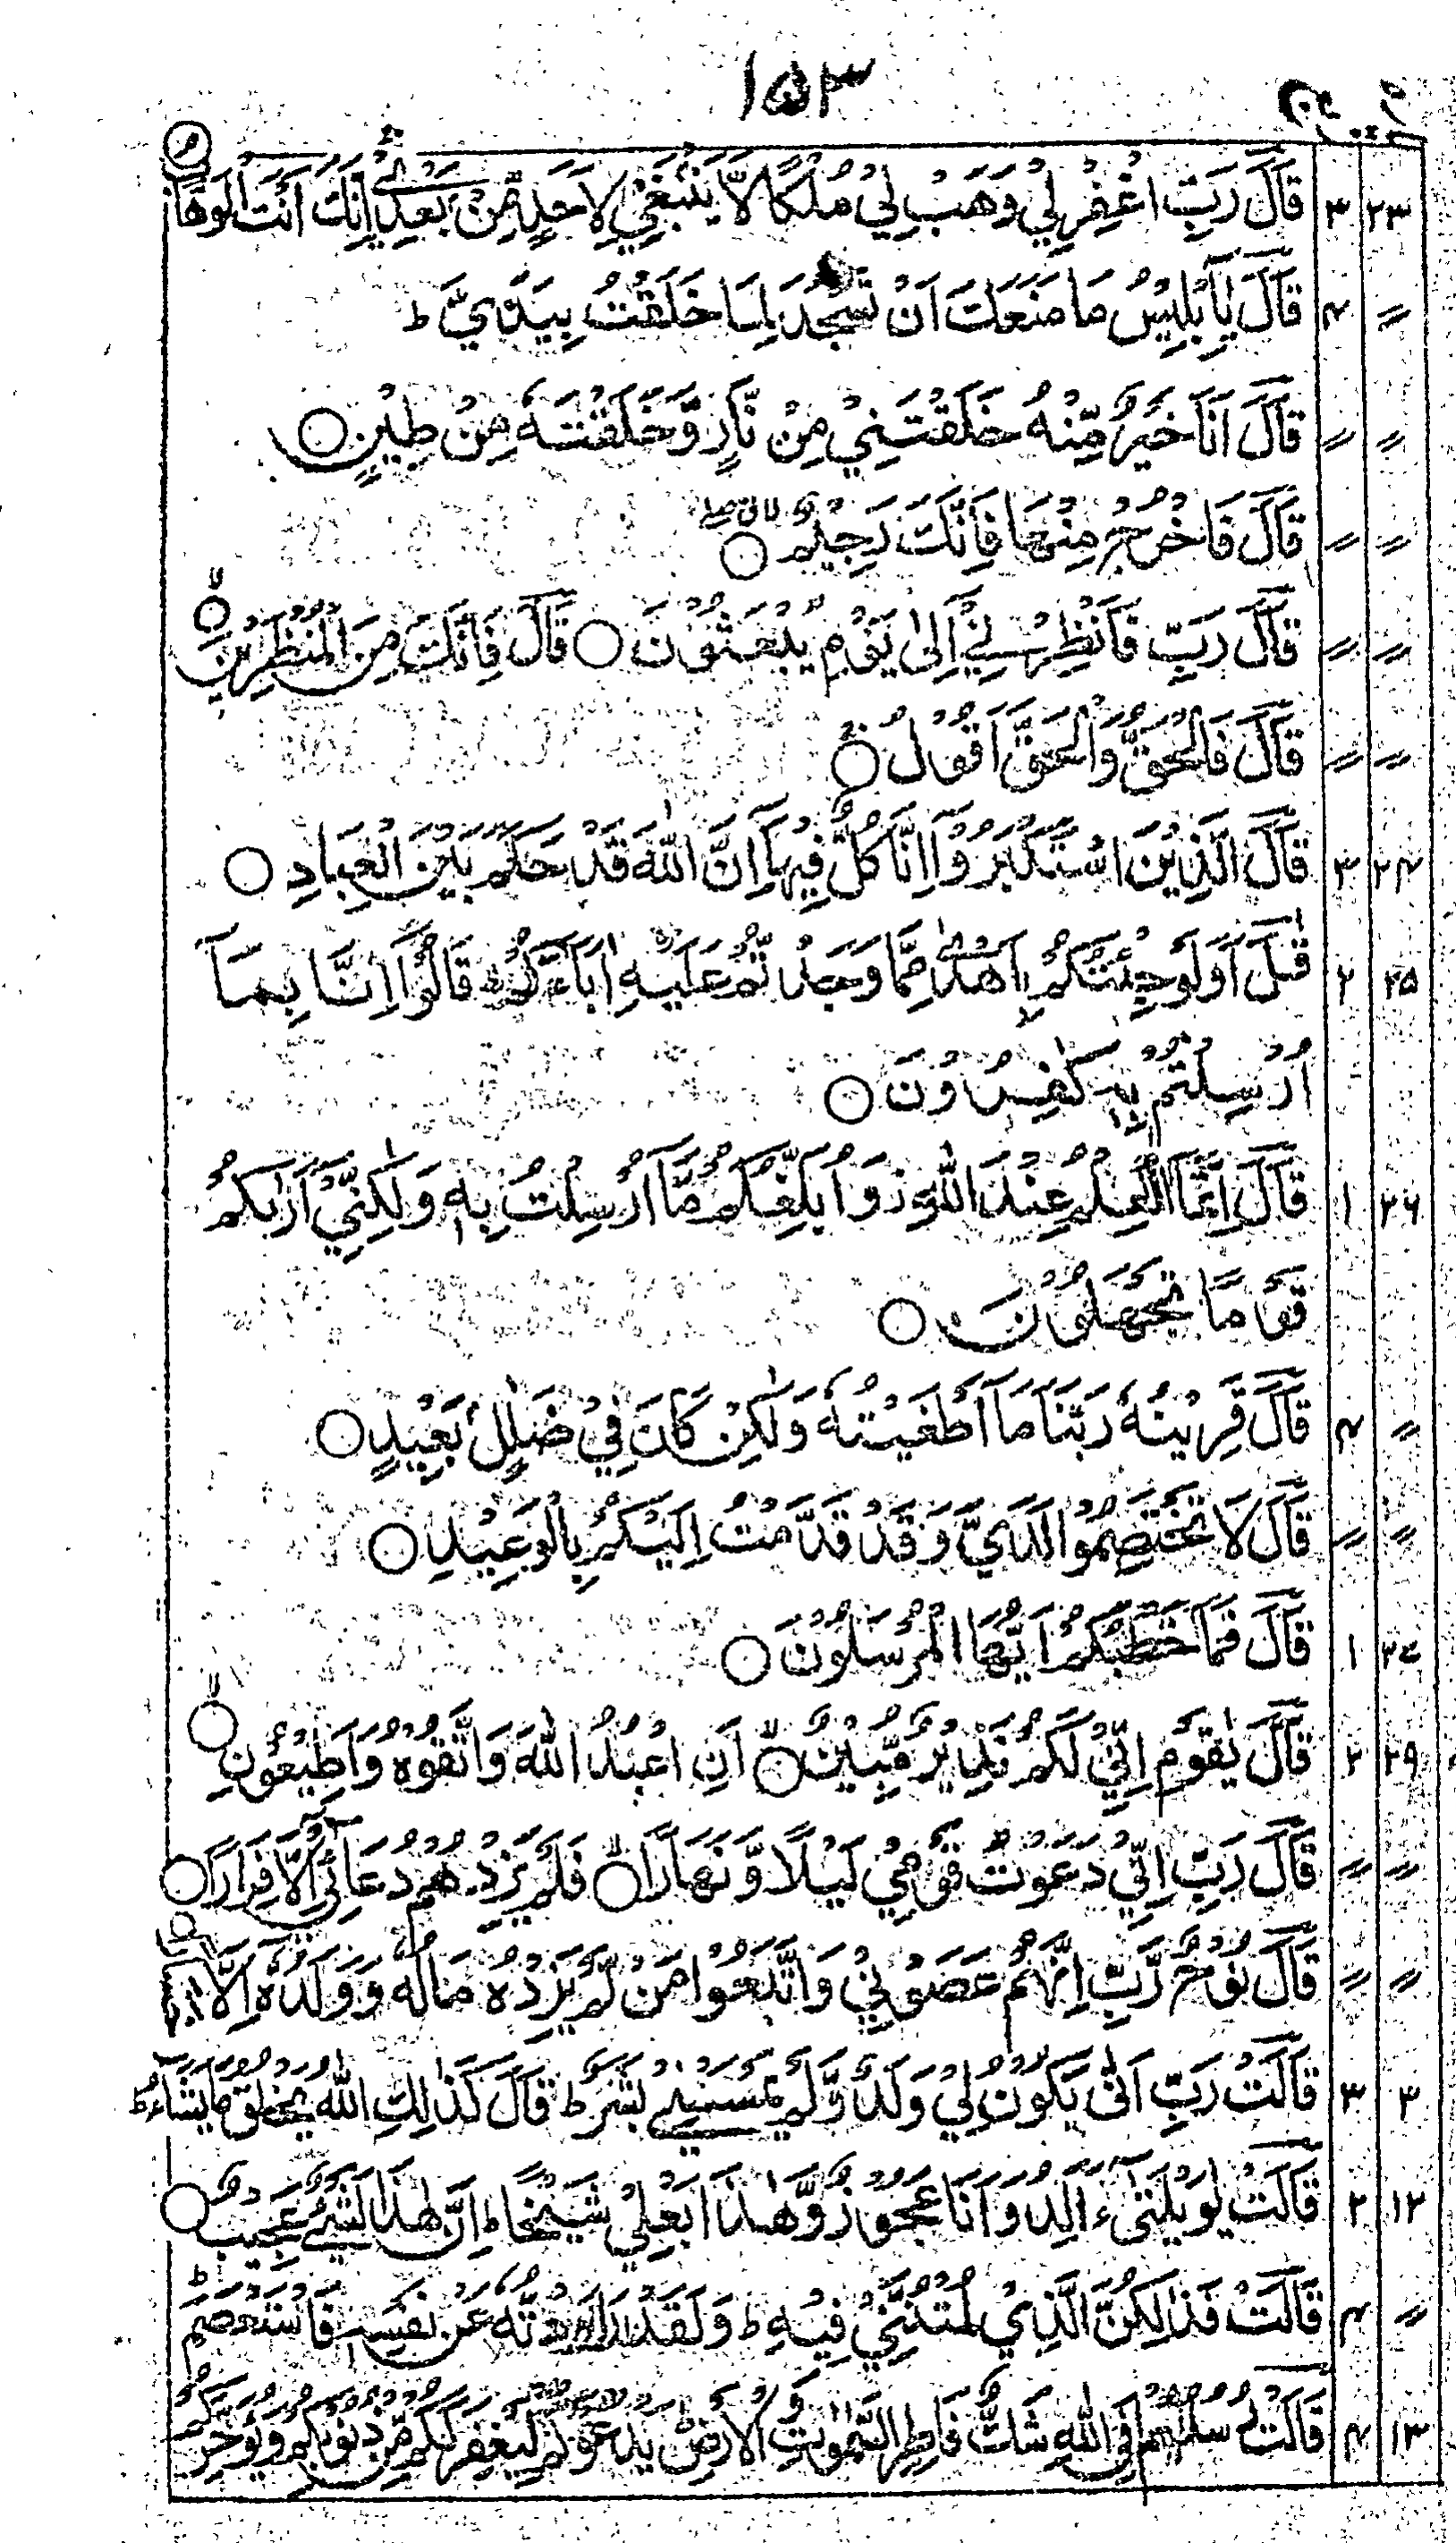 ۱۵۳
۲۳ ۳ قَالَ رَبِّ اغْفِرْ لِيْ وَهَبْ لِيْ مُلْكًا لَّا يَنْۢبَغِيْ لِاَحَدٍ مِّنْۢ بَعْدِيْ اِنَّكَ اَنْتَ الْوَهَّا
〃 ۴ قَالَ يٰٓاِبْلِيْسُ مَا مَنَعَكَ اَنْ تَسْجُدَ لِمَا خَلَقْتُ بِيَدَيَّ ط
〃 〃 قَالَ اَنَا خَيْرٌ مِّنْهُ خَلَقْتَنِيْ مِنْ نَّارٍ وَّخَلَقْتَهٗ مِنْ طِيْنٍ ○
〃 〃 قَالَ فَاخْرُجْ مِنْهَا فَاِنَّكَ رَجِيْمٌ ○
〃 〃 قَالَ رَبِّ فَاَنْظِرْنِيْٓ اِلٰى يَوْمِ يُبْعَثُوْنَ ○ قَالَ فَاِنَّكَ مِنَ الْمُنْظَرِيْنَ ○ لا
〃 〃 قَالَ فَالْحَقُّ وَالْحَقَّ اَقُوْلُ ○
۲۴ ۳ قَالَ الَّذِيْنَ اسْتَكْبَرُوْٓا اِنَّا كُلٌّ فِيْهَآ اِنَّ اللّٰهَ قَدْ حَكَمَ بَيْنَ الْعِبَادِ ○
۲۵ ۲ قٰلَ اَوَلَوْ جِئْتُكُمْ بِاَهْدٰى مِمَّا وَجَدْتُّمْ عَلَيْهِ اٰبَآءَكُمْ قَالُوْٓا اِنَّا بِمَآ
اُرْسِلْتُمْ بِهٖ كٰفِرُوْنَ ○
۲۶ ۱ قَالَ اِنَّمَا الْعِلْمُ عِنْدَ اللّٰهِ وَاُبَلِّغُكُمْ مَّآ اُرْسِلْتُ بِهٖ وَلٰكِنِّيْٓ اَرٰىكُمْ
قَوْمًا تَجْهَلُوْنَ ○
〃 ۴ قَالَ قَرِيْنُهٗ رَبَّنَا مَآ اَطْغَيْتُهٗ وَلٰكِنْ كَانَ فِيْ ضَلٰلٍۢ بَعِيْدٍ ○
〃 〃 قَالَ لَا تَخْتَصِمُوْا لَدَيَّ وَقَدْ قَدَّمْتُ اِلَيْكُمْ بِالْوَعِيْدِ ○
۲۷ ۱ قَالَ فَمَا خَطْبُكُمْ اَيُّهَا الْمُرْسَلُوْنَ ○
۲۹ ۲ قَالَ يٰقَوْمِ اِنِّيْ لَكُمْ نَذِيْرٌ مُّبِيْنٌ ○ لا اَنِ اعْبُدُوا اللّٰهَ وَاتَّقُوْهُ وَاَطِيْعُوْنِ ○ لا
〃 〃 قَالَ رَبِّ اِنِّيْ دَعَوْتُ قَوْمِيْ لَيْلًا وَّنَهَارًا ○ لا فَلَمْ يَزِدْهُمْ دُعَآئِيْٓ اِلَّا فِرَارًا ○
〃 〃 قَالَ نُوْحٌ رَّبِّ اِنَّهُمْ عَصَوْنِيْ وَاتَّبَعُوْا مَنْ لَّمْ يَزِدْهُ مَالُهٗ وَوَلَدُهٗٓ اِلَّا
۳ ۳ قَالَتْ رَبِّ اَنّٰى يَكُوْنُ لِيْ وَلَدٌ وَّلَمْ يَمْسَسْنِيْ بَشَرٌ ط قَالَ كَذٰلِكِ اللّٰهُ يَخْلُقُ مَا يَشَآءُ ط
۱۲ ۲ قَالَتْ يٰوَيْلَتٰٓى ءَاَلِدُ وَاَنَا عَجُوْزٌ وَّهٰذَا بَعْلِيْ شَيْخًا ط اِنَّ هٰذَا لَشَيْءٌ عَجِيْبٌ ○
〃 ۴ قَالَتْ فَذٰلِكُنَّ الَّذِيْ لُمْتُنَّنِيْ فِيْهِ ط وَلَقَدْ رَاوَدْتُّهٗ عَنْ نَّفْسِهٖ فَاسْتَعْصَمَ ط
۱۳ ۴ قَالَتْ رُسُلُهُمْ اَفِي اللّٰهِ شَكٌّ فَاطِرِ السَّمٰوٰتِ وَالْاَرْضِ يَدْعُوْكُمْ لِيَغْفِرَ لَكُمْ مِّنْ ذُنُوْبِكُمْ وَيُؤَخِّرَكُمْ